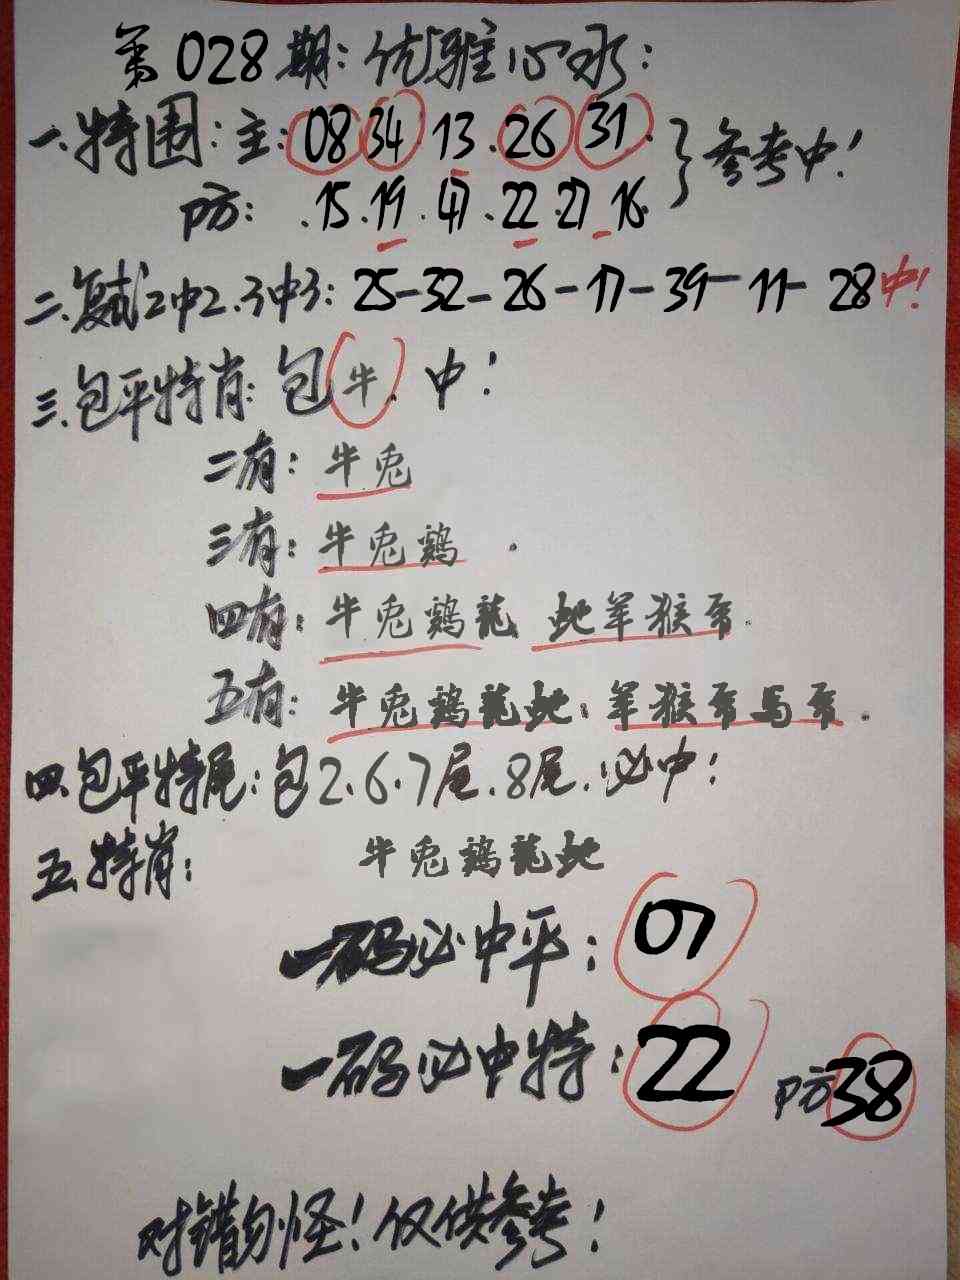 第028期:优雅心水:
一.特围:主:08 34.13.26 31. }参考中!
防:.15.19.47.22.27.16.
二.复试2中2.3中3:25-32-26-17-39-11-28中!
三.包平特肖:包牛.中!
二有:牛兔
三有:牛兔鷄.
四有:牛兔鷄龍 蛇羊猴
五有:牛兔鷄龍蛇.羊猴 馬
四.包平特尾:包2.6.7尾.8尾.必中!
五.特肖:牛兔鷄龍蛇
一码必中平:07
一码必中特:22 防38
对错勿怪!仅供参考!